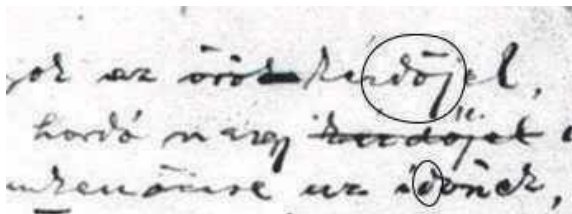 az örök kérdőjel,
hordó nagy kérdőjel
az időnek,